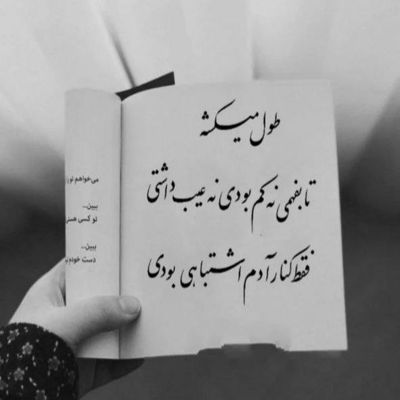 طول میکشه
تا بفهمی نه کم بودی نه عیب داشتی
فقط کنار آدم اشتباهی بودی
می‌خواهم تو را
ببین...
تو کسی هستی
ببین...
دست خودم